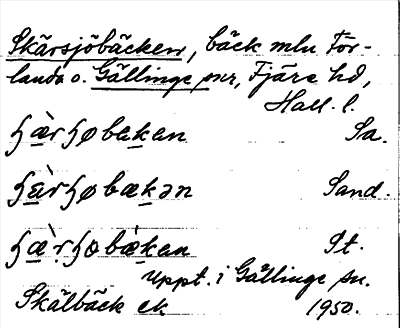 Skärsjöbäcken, bäck mlu För-
landa o. Gällinge snr, Fjäre hd,
Hall. l.
ɧæ̀rɧøbakan Sa.
ɧæ̀rɧøbækən Sand.
ɧæ̀rɧøbækan St.
Uppt. i Gällinge sn.
Skälbäck ek 1950.